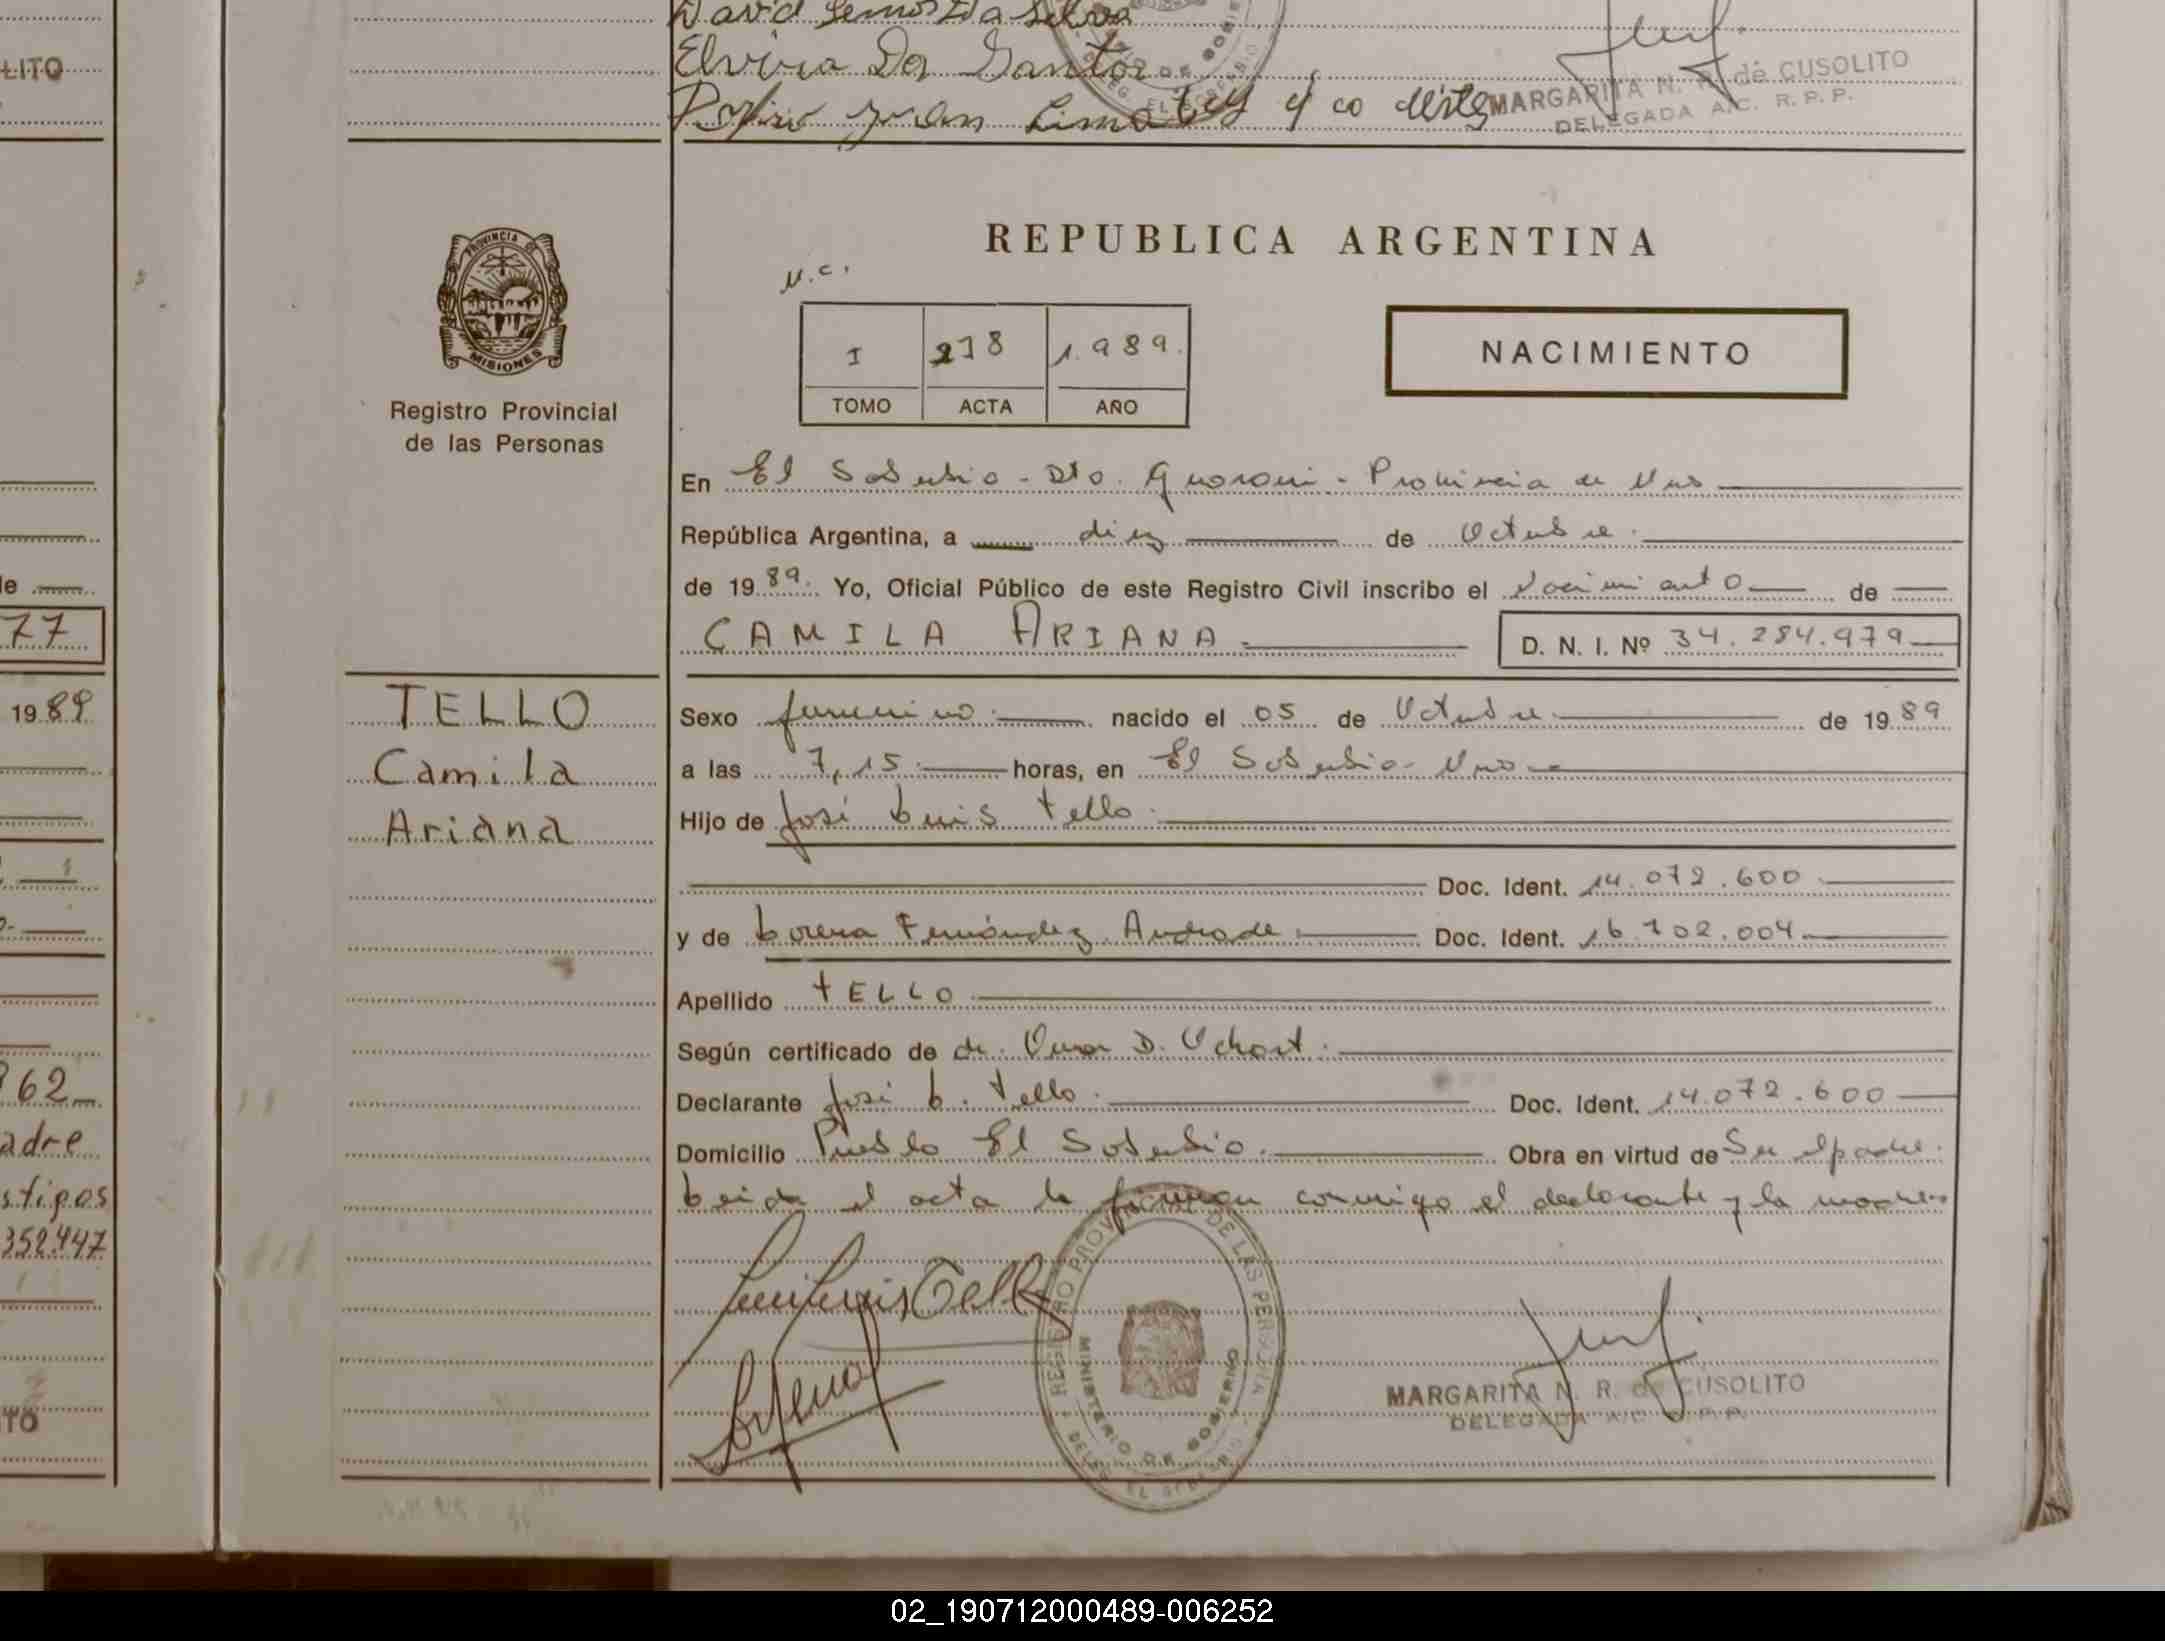 David Lemos Da Silva
Elvira Dos Santos
Porfirio Juan Lima
MARGARITA N. R. de CUSOLITO
DELEGADA A.C. R.P.P.
LITO
PROVINCIA DE
MISIONES
Registro Provincial
de las Personas
REPUBLICA ARGENTINA
N.C.
I 278 1.989.
TOMO ACTA AÑO
NACIMIENTO
En El Soberbio - Dto. Guarani - Provincia de Mnes
República Argentina, a diez de Octubre.
de 1989. Yo, Oficial Público de este Registro Civil inscribo el Nacimiento de
CAMILA ARIANA. D. N. I. Nº 34.284.979
TELLO
Camila
Ariana
Sexo femenino. nacido el 05 de Octubre de 1989
a las 7,15. horas, en El Soberbio - Mnes
Hijo de José Luis Tello.
Doc. Ident. 14.072.600
y de Lorena Fernández Andrade. Doc. Ident. 16.702.004
Apellido TELLO
Según certificado de dr. Omar D.
Declarante José L. Tello. Doc. Ident. 14.072.600
Domicilio Pueblo El Soberbio. Obra en virtud de Ser el padre.
Leida el acta la firman conmigo el declarante y la madre
José Luis Tello
Lorena
REGISTRO PROVINCIAL DE LAS PERSONAS
MINISTERIO DE GOBIERNO
DELEG. EL SOBERBIO
MARGARITA N. R. de CUSOLITO
DELEGADA A.C. R.P.P.
de
77
1989
62
adre
stigos
352.447
TO
02_190712000489-006252